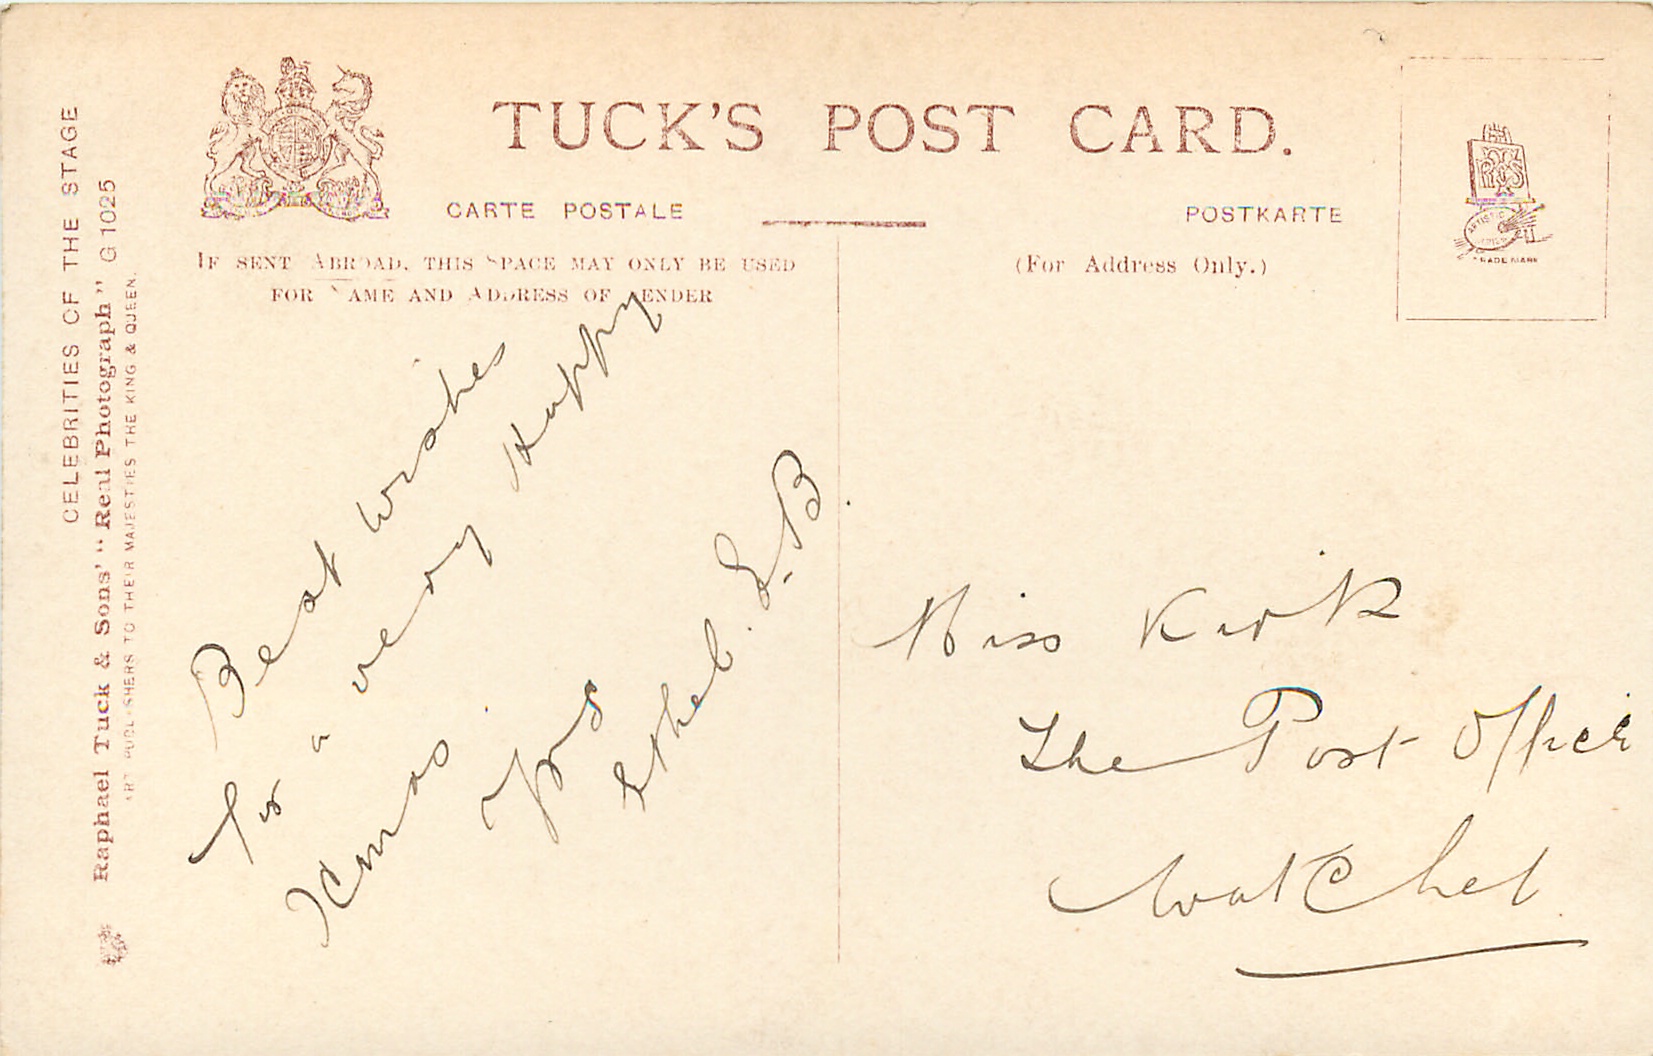 TUCK'S POST CARD.
CARTE POSTALE
POSTKARTE
IF SENT ABROAD, THIS SPACE MAY ONLY BE USED
FOR NAME AND ADDRESS OF SENDER
(For Address Only.)
CELEBRITIES OF THE STAGE
Raphael Tuck & Sons' "Real Photograph" G 1025
ART PUBLISHERS TO THEIR MAJESTIES THE KING & QUEEN.
ARTISTIC
TRADE MARK
Best Wishes
for a very Happy
Xmas
Yrs
Ethel. L. B.
Miss Kirk
The Post Office
Watchet